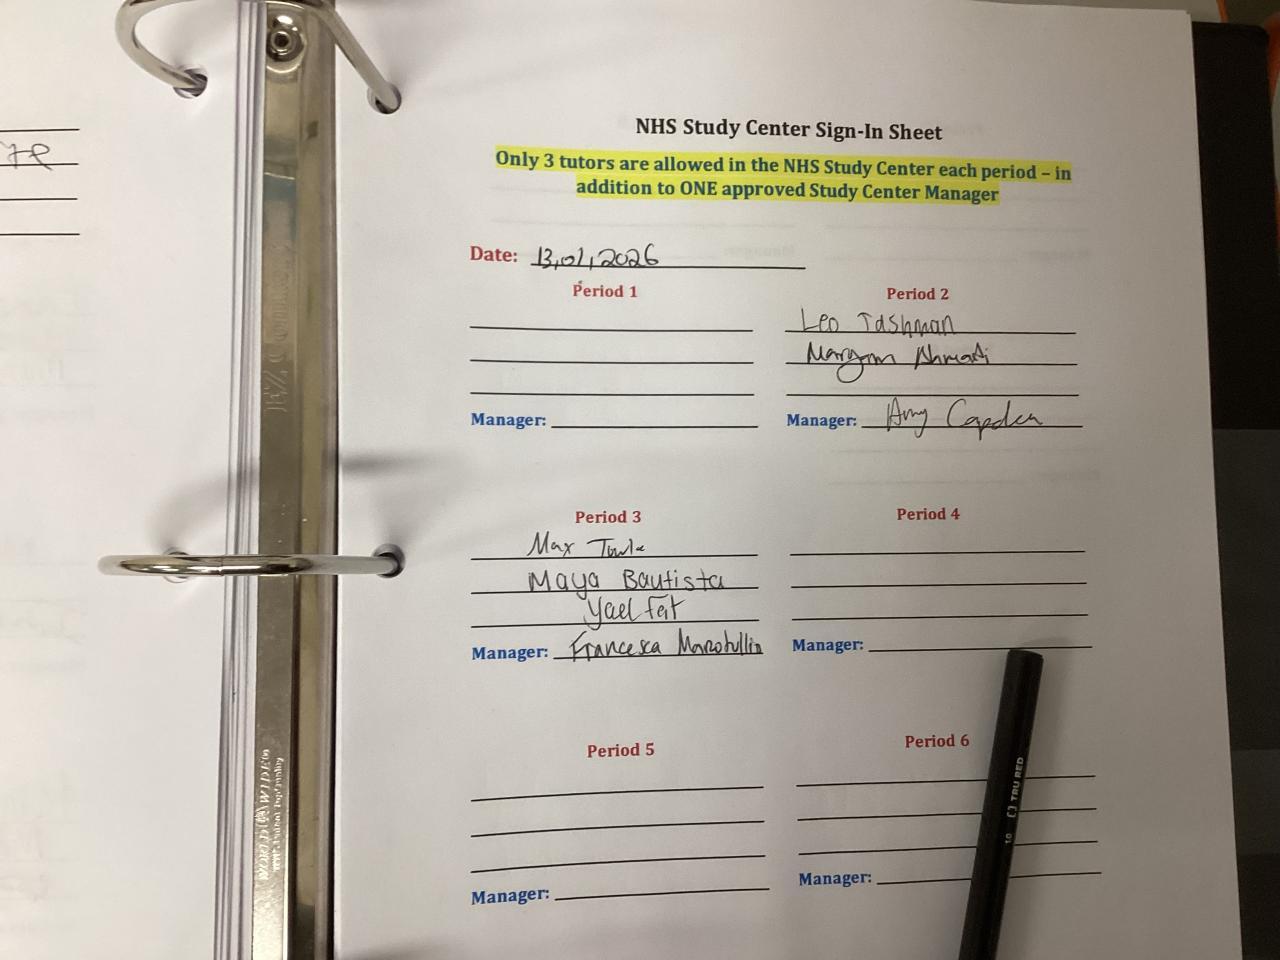 NHS Study Center Sign-In Sheet
Only 3 tutors are allowed in the NHS Study Center each period – in
addition to ONE approved Study Center Manager
Date: 13,01,2026
Period 1
Manager:
Period 2
Leo Tashman
Maryam Ahmadi
Manager: Amy
Period 3
Max
Maya Bautista
Yael Feit
Manager: Francesca
Period 4
Manager:
Period 5
Manager:
Period 6
Manager:
TRU RED
1.0